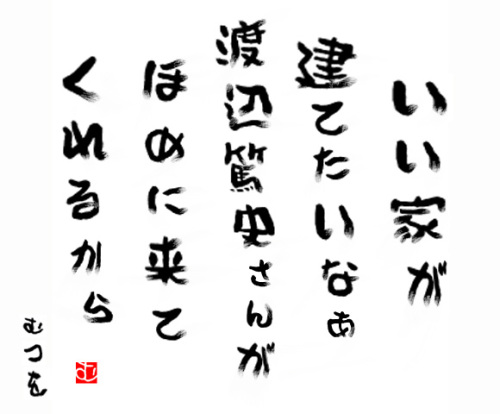 いい家が
建てたいなぁ
渡辺篤史さんが
ほめに来て
くれるから
むつを
む